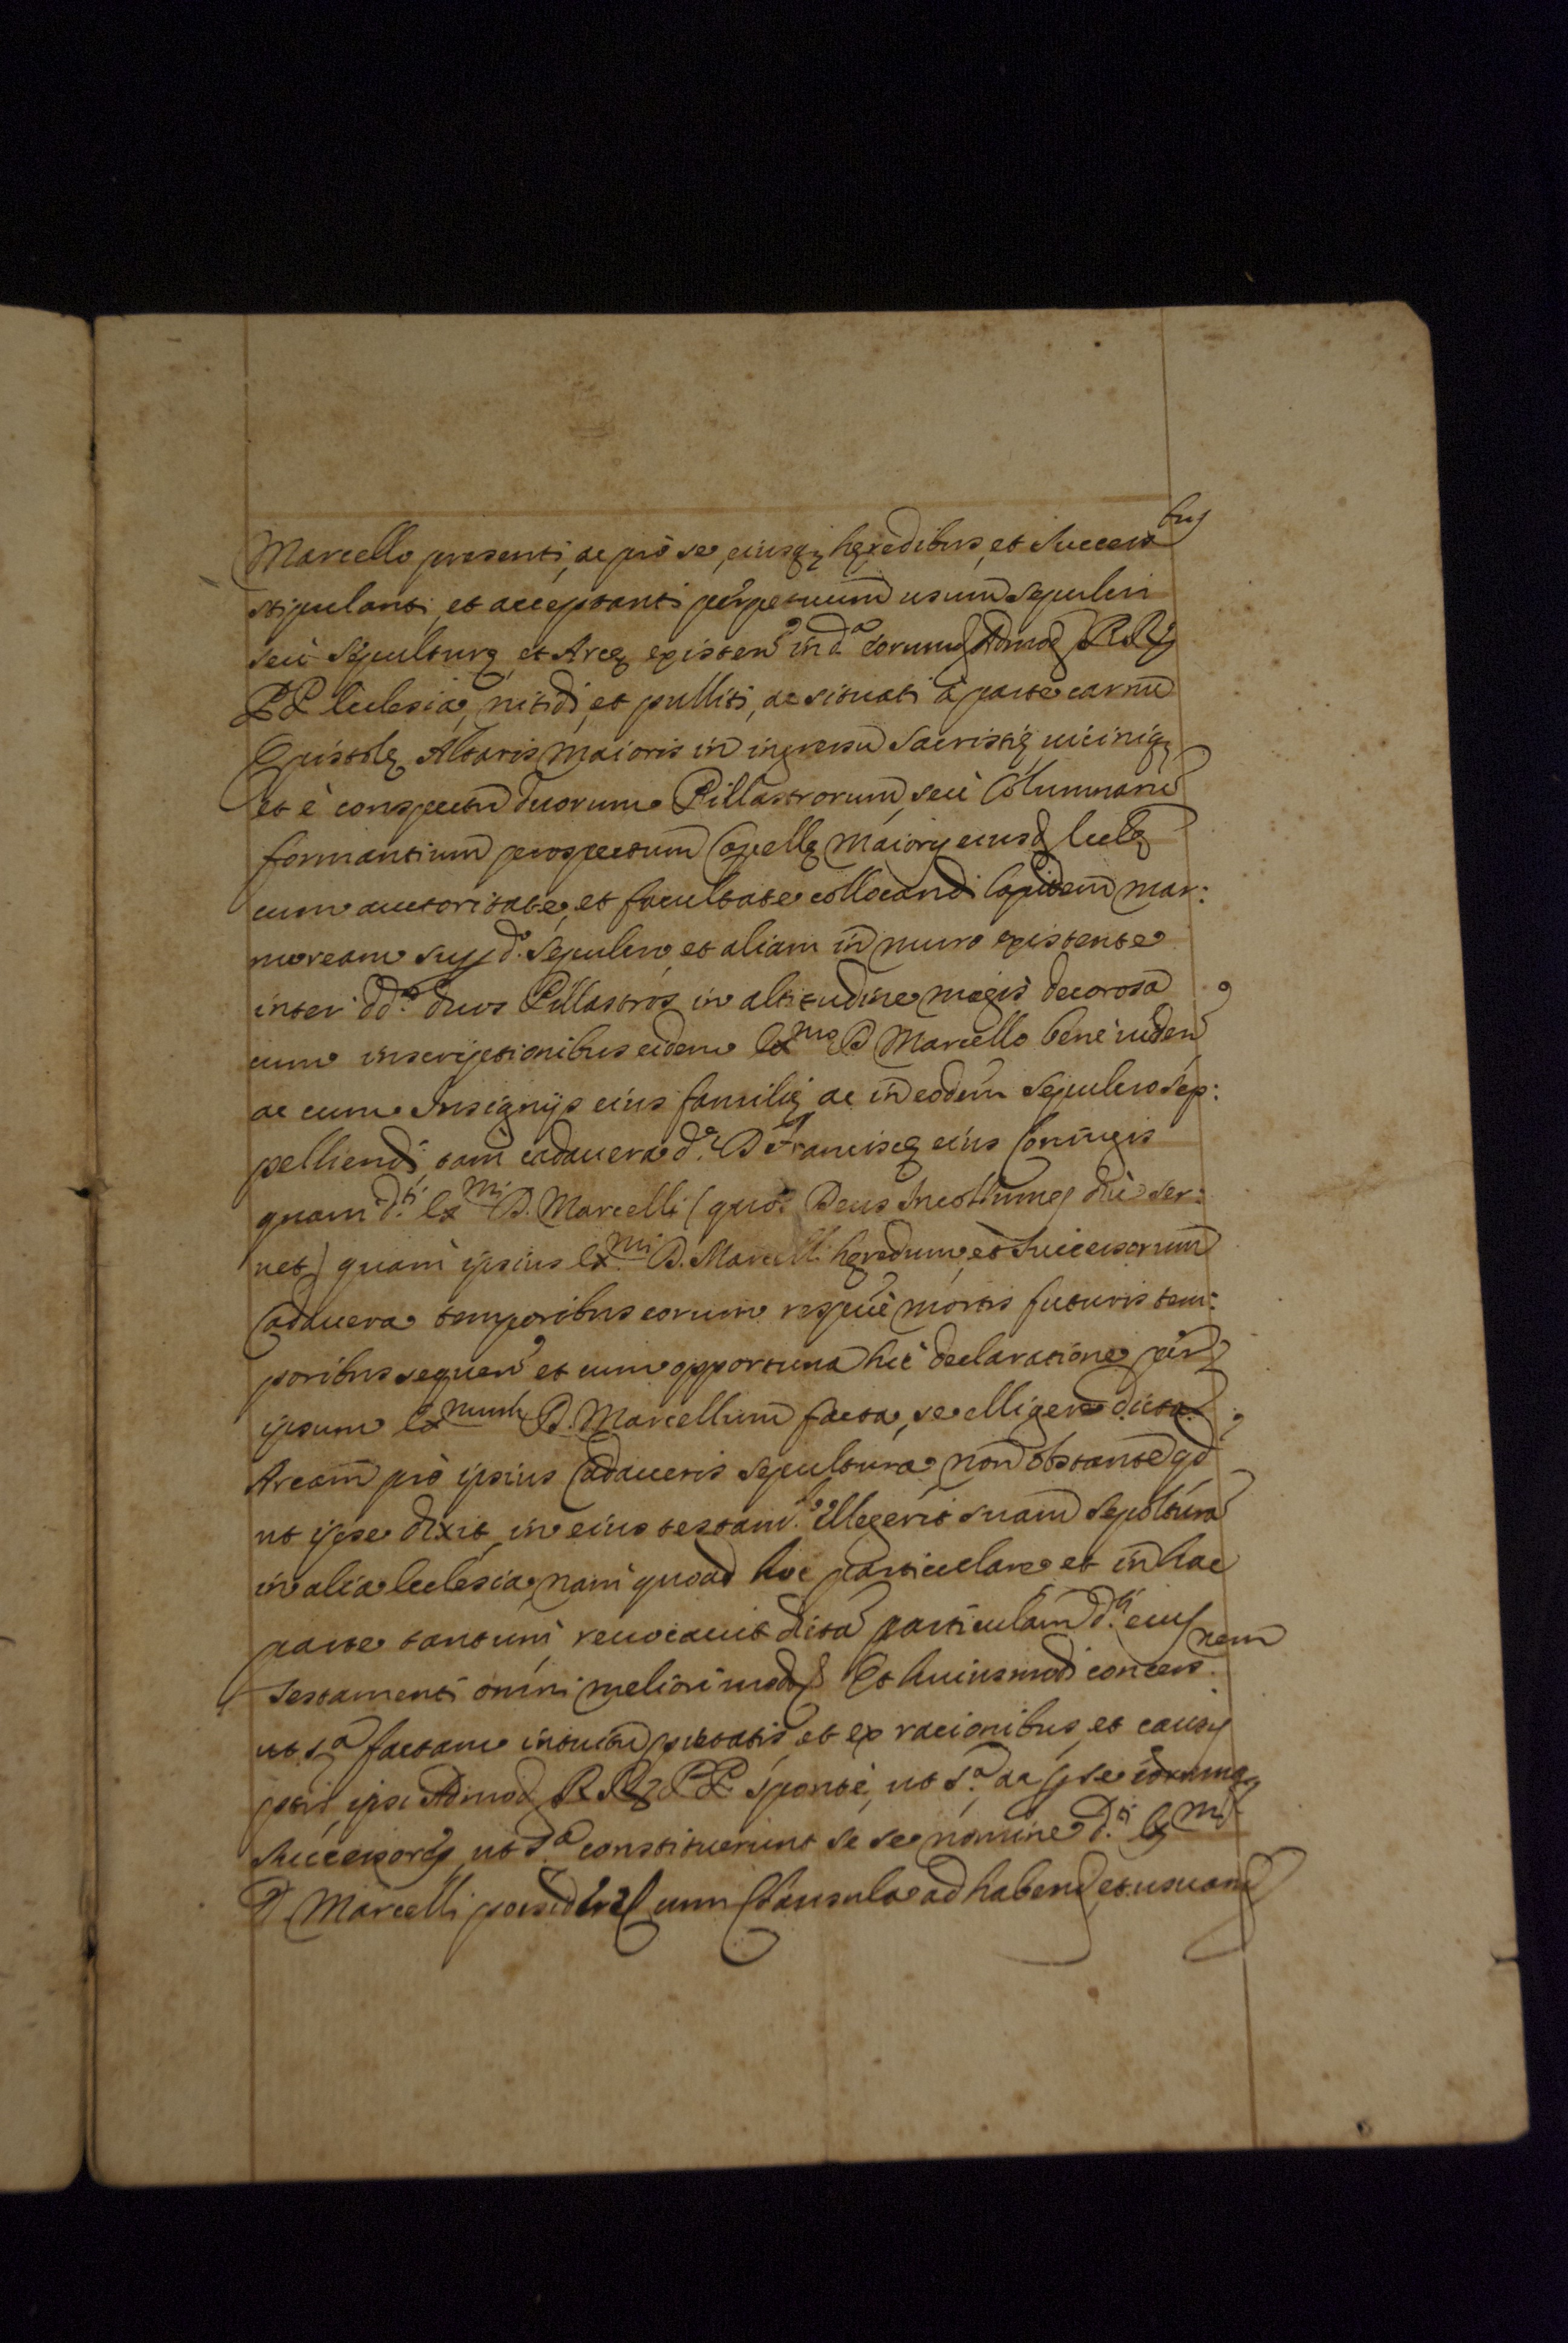 Marcello presenti, ac pro se, eiusq; hęredibus, et Success.bus
stipulanti et acceptanti perpetuum usum sepulcri
seù sepulturę et Arcę existen in d.a eorumd Admod RR
PP Ecclesia, nitidi, et pulliti, ac situati à parte cornu
Epistolę Altaris Maioris in ingressu Sacristię uicinię
et è conspectu duorum Pillastrorum, seù Columnaru
formantium prospectum Capellę maioris eiusd Eccle
cum auctoritate, et facultate collocandi lapidem mar:
moream sup d.o sepulcro, et aliam in muro existente
inter dd.os duos Pillastros in altitudine magis decorosa
cum inscriptionibus eidem Ex.mo D Marcello bene uiden
ac cum Insignijs eius familię ac in eodem sepulcro sep:
pelliendi tam cadauera d.ę D Franciscę eius Coniugis
quam d.ti Ex.mi D. Marcelli (quos Deus Incollumes diù ser:
uet) quam ipsius Ex.mi D. Marcelli hęredum, et Successorum
Cadauera temporibus eorum respuè mortis futuris tem:
poribus sequen et cum opportuna hic declaratione per
ipsum Ex.mum D. Marcellum facta, se elligere dicta
Arcam pro ipsius Cadaueris sepultura non obstante qd
ut ipse dixit, in eius testam.to ellegerit suam sepoltura
in alia Ecclesia, nam quoad hoc particulare et in hac
parte tantum, reuocauit dicta particulam d.ti eius
testamenti omni meliori modo Et huiusmodi concess.nem
ut s.a factam intuitu pietatis et ex racionibus, et causis
pttis, ipsi Admod RR PP sponte, ut s.a ac p se eorumq;
successores ut s.a constituerunt se se nomine d.ti Ex.mi
D. Marcelli possidere cum Clausula ad habend et usuand